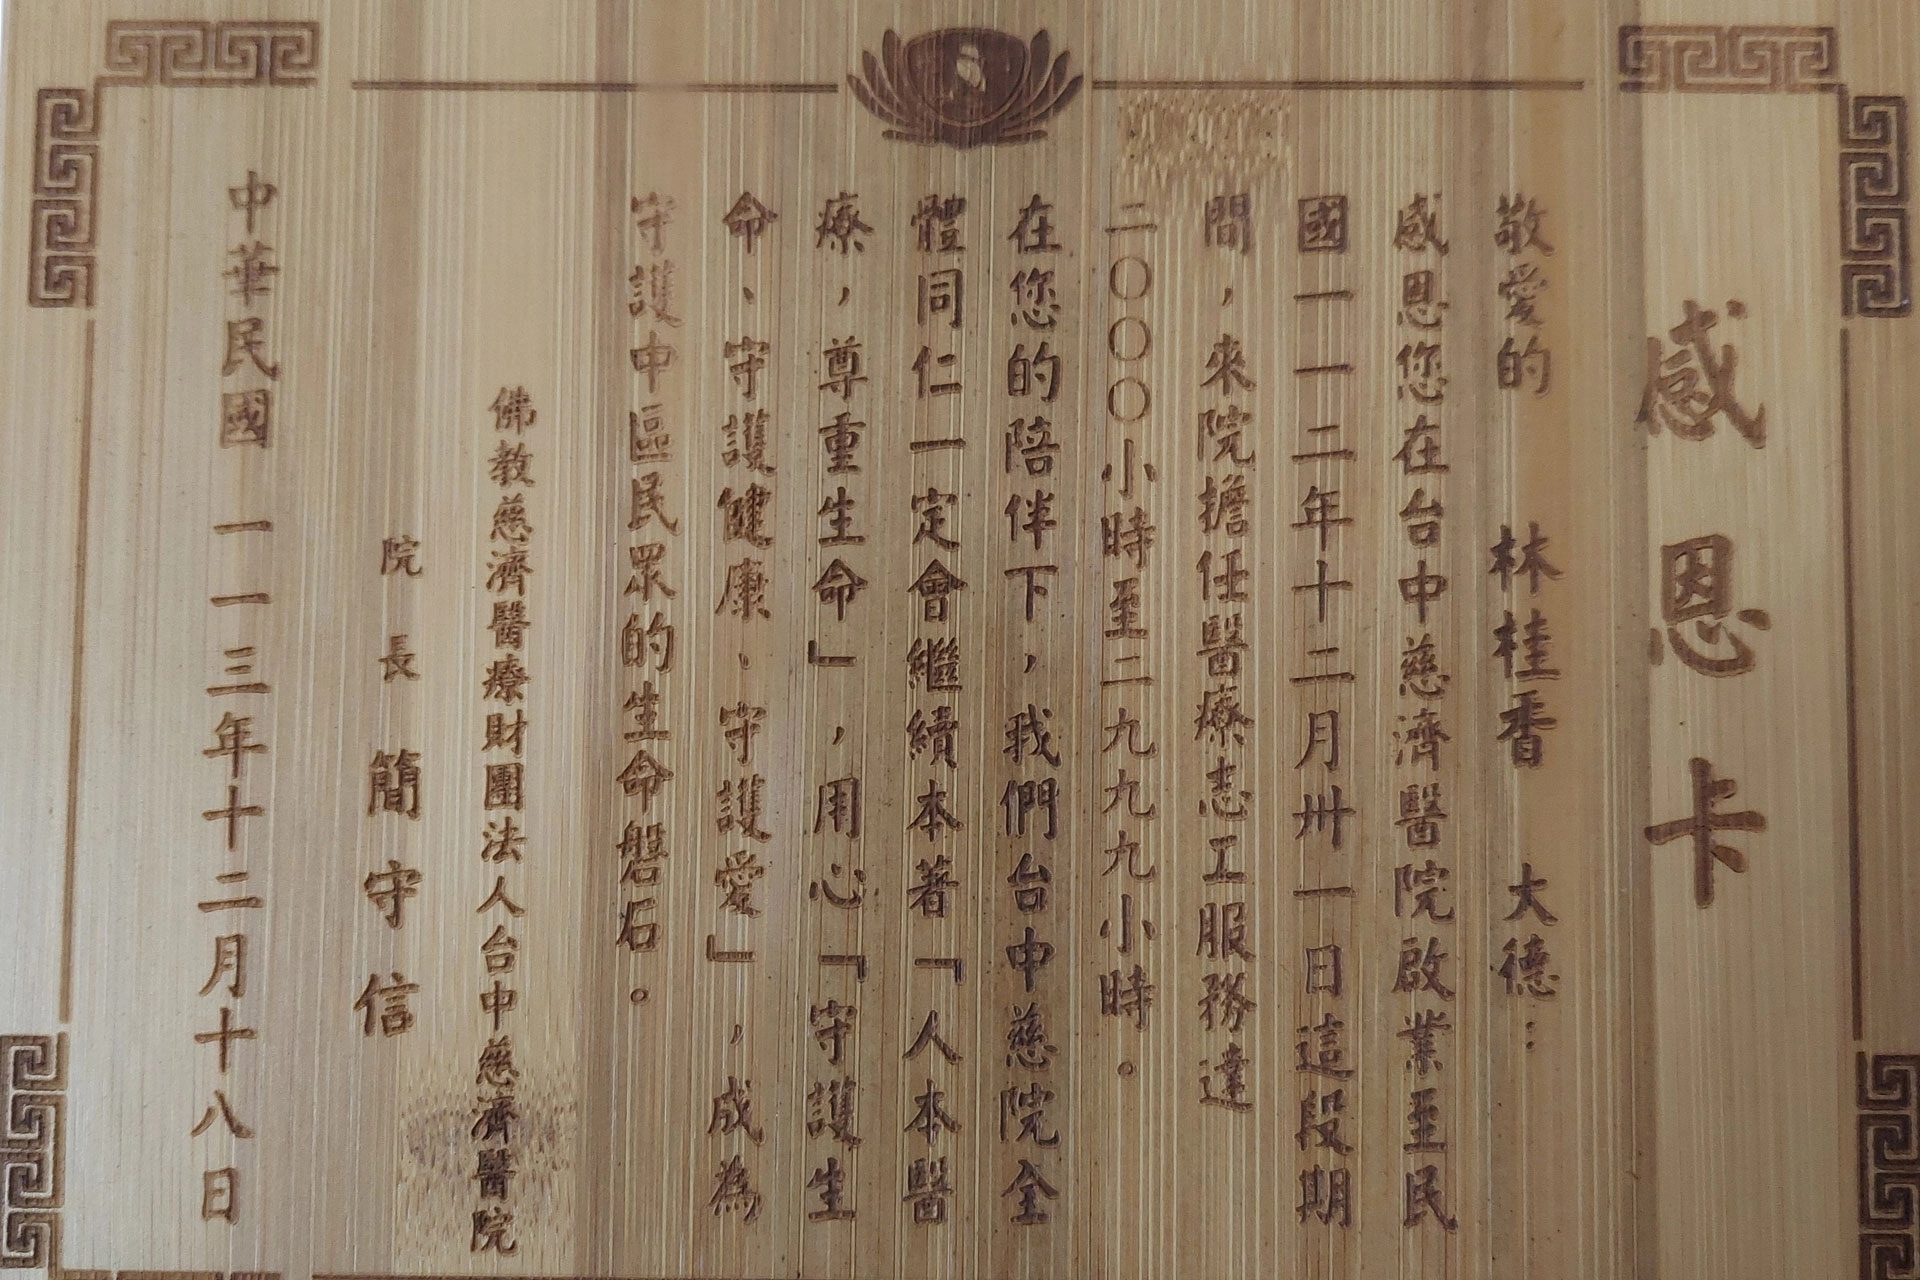 感恩卡
敬愛的 林桂香 大德：
感恩您在台中慈濟醫院啟業至民
國一一二年十二月卅一日這段期
間，來院擔任醫療志工服務達
二〇〇〇小時至二九九九小時。
在您的陪伴下，我們台中慈院全
體同仁一定會繼續本著「人本醫
療，尊重生命」，用心「守護生
命、守護健康、守護愛」，成為
守護中區民眾的生命磐石。
佛教慈濟醫療財團法人台中慈濟醫院
院長 簡守信
中華民國一一三年十二月十八日